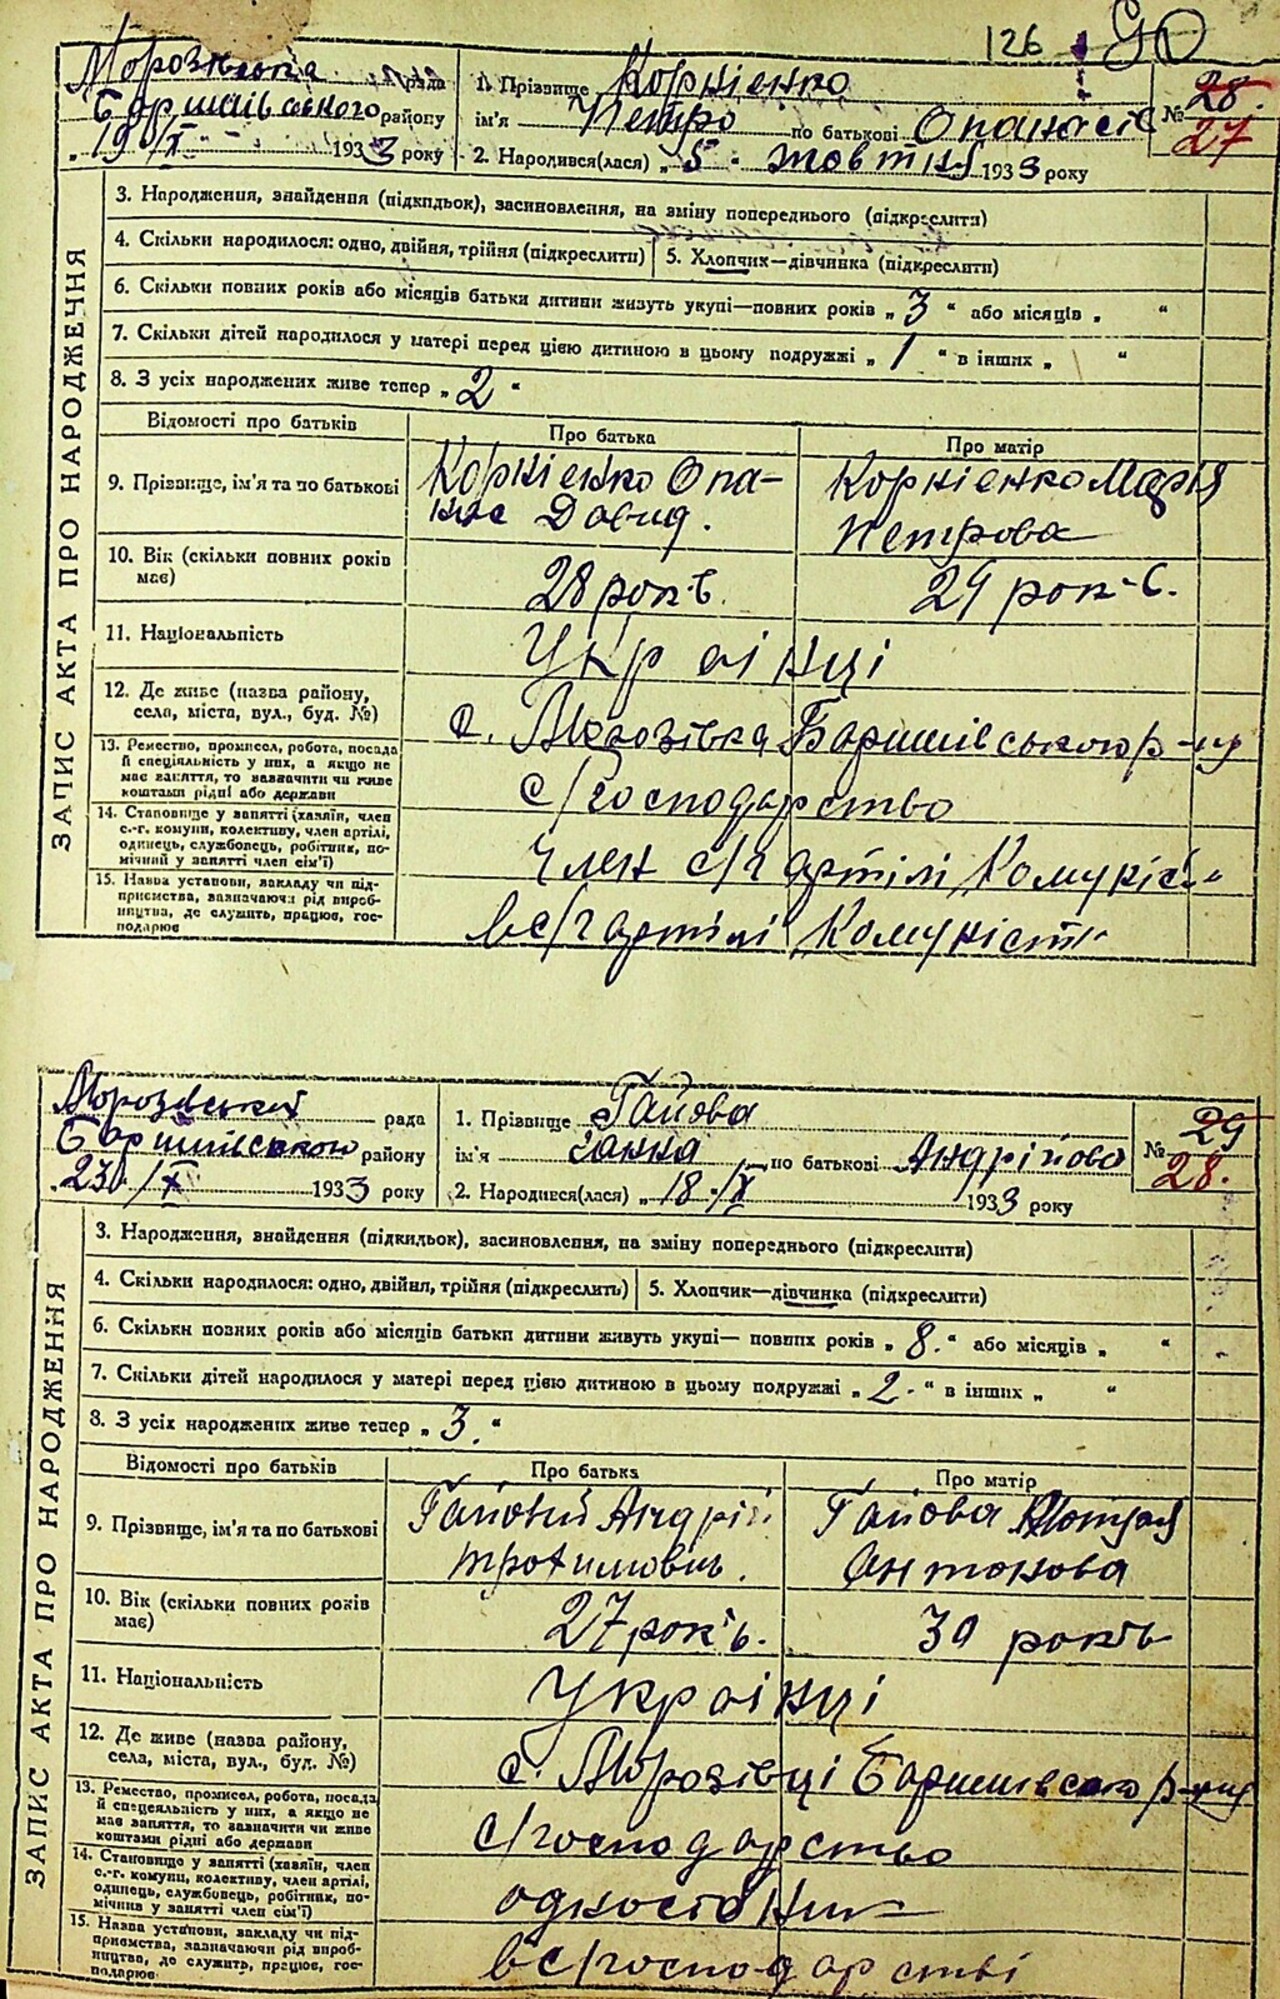 126 90
Морозівська рада
Баришівського району
„19/X 1933 року
1. Прізвище Корнієнко
ім'я Петро по батькові Опанасів
2. Народився(лася) „5" жовтня 1933 року
№ 28
27
ЗАПИС АКТА ПРО НАРОДЖЕННЯ
3. Народження, знайдення (підкидьок), засиновлення, на зміну попереднього (підкреслити)
4. Скільки народилося: одно, двійня, трійня (підкреслити) 5. Хлопчик—дівчинка (підкреслити)
6. Скільки повних років або місяців батьки дитини живуть укупі—повних років „ 3 " або місяців „ "
7. Скільки дітей народилося у матері перед цією дитиною в цьому подружжі „ 1 " в інших „ "
8. З усіх народжених живе тепер „ 2 "
Відомості про батьків Про батька Про матір
9. Прізвище, ім'я та по батькові Корнієнко Опа- Корнієнко Марія
нас Давид. Петрова
10. Вік (скільки повних років
має) 28 рок-в. 29 рок-в.
11. Національність Українці
12. Де живе (назва району,
села, міста, вул., буд. №) с. Морозівка Баришівського р-ну
13. Ремество, промисел, робота, посада
й спеціяльність у них, а якщо не
має заняття, то зазначити чи живе
коштами рідні або держави с/господарство
14. Становище у занятті (хазяїн, член
с.-г. комуни, колективу, член артілі,
одинець, службовець, робітник, по-
мічний у занятті член сім'ї) член с/г артілі Комуніст"
15. Назва установи, закладу чи під-
приємства, зазначаючи рід вироб-
ництва, де служить, працює, гос-
подарює в с/г артілі Комуніст"
Морозівської рада
Баришівського району
„23"/X 1933 року
1. Прізвище Гайова
ім'я Ганна по батькові Андрійова
2. Народився(лася) „18"/X 1933 року
№ 29
28.
ЗАПИС АКТА ПРО НАРОДЖЕННЯ
3. Народження, знайдення (підкидьок), засиновлення, на зміну попереднього (підкреслити)
4. Скільки народилося: одно, двійня, трійня (підкреслить) 5. Хлопчик—дівчинка (підкреслити)
6. Скільки повних років або місяців батьки дитини живуть укупі— повних років „ 8. " або місяців „ "
7. Скільки дітей народилося у матері перед цією дитиною в цьому подружжі „ 2 - " в інших „ "
8. З усіх народжених живе тепер „ 3. "
Відомості про батьків Про батька Про матір
9. Прізвище, ім'я та по батькові Гайовий Андрій Гайова Мотря
Трохимовіч. Антонова
10. Вік (скільки повних років
має) 27 рок-в. 30 рок-в
11. Національність Українці
12. Де живе (назва району,
села, міста, вул., буд. №) с. Морозівці Баришівсько р-ну
13. Ремество, промисел, робота, посада
й спецеяльність у них, а якщо не
має заняття, то зазначити чи живе
коштами рідні або держави с/господарство
14. Становище у занятті (хазяїн, член
с.-г. комуни, колективу, член артілі,
одинець, службовець, робітник, по-
мічнив у занятті член сім'ї) одноосібник
15. Назва установи, закладу чи під-
приємства, зазначаючи рід вироб-
ництва, де служить, працює, гос-
подарює в с/господарстві